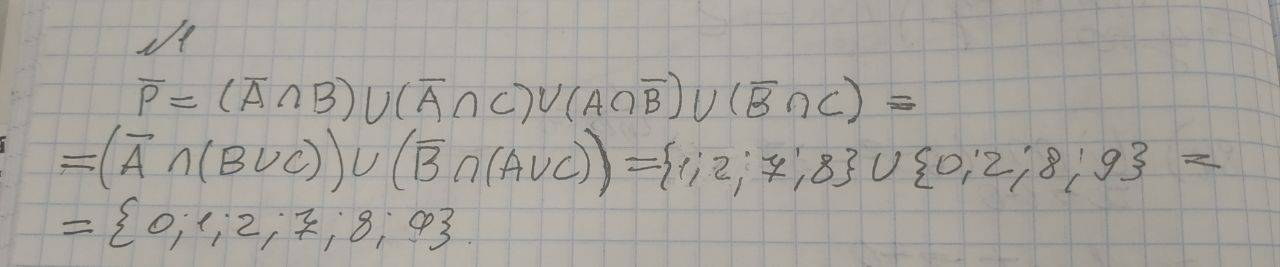 №1
P̅ = (A̅ ∩ B) ∪ (A̅ ∩ C) ∪ (A ∩ B̅) ∪ (B̅ ∩ C) =
= (A̅ ∩ (B ∪ C)) ∪ (B̅ ∩ (A ∪ C)) = {1; 2; 7; 8} ∪ {0; 2; 8; 9} =
= {0; 1; 2; 7; 8; 9}.